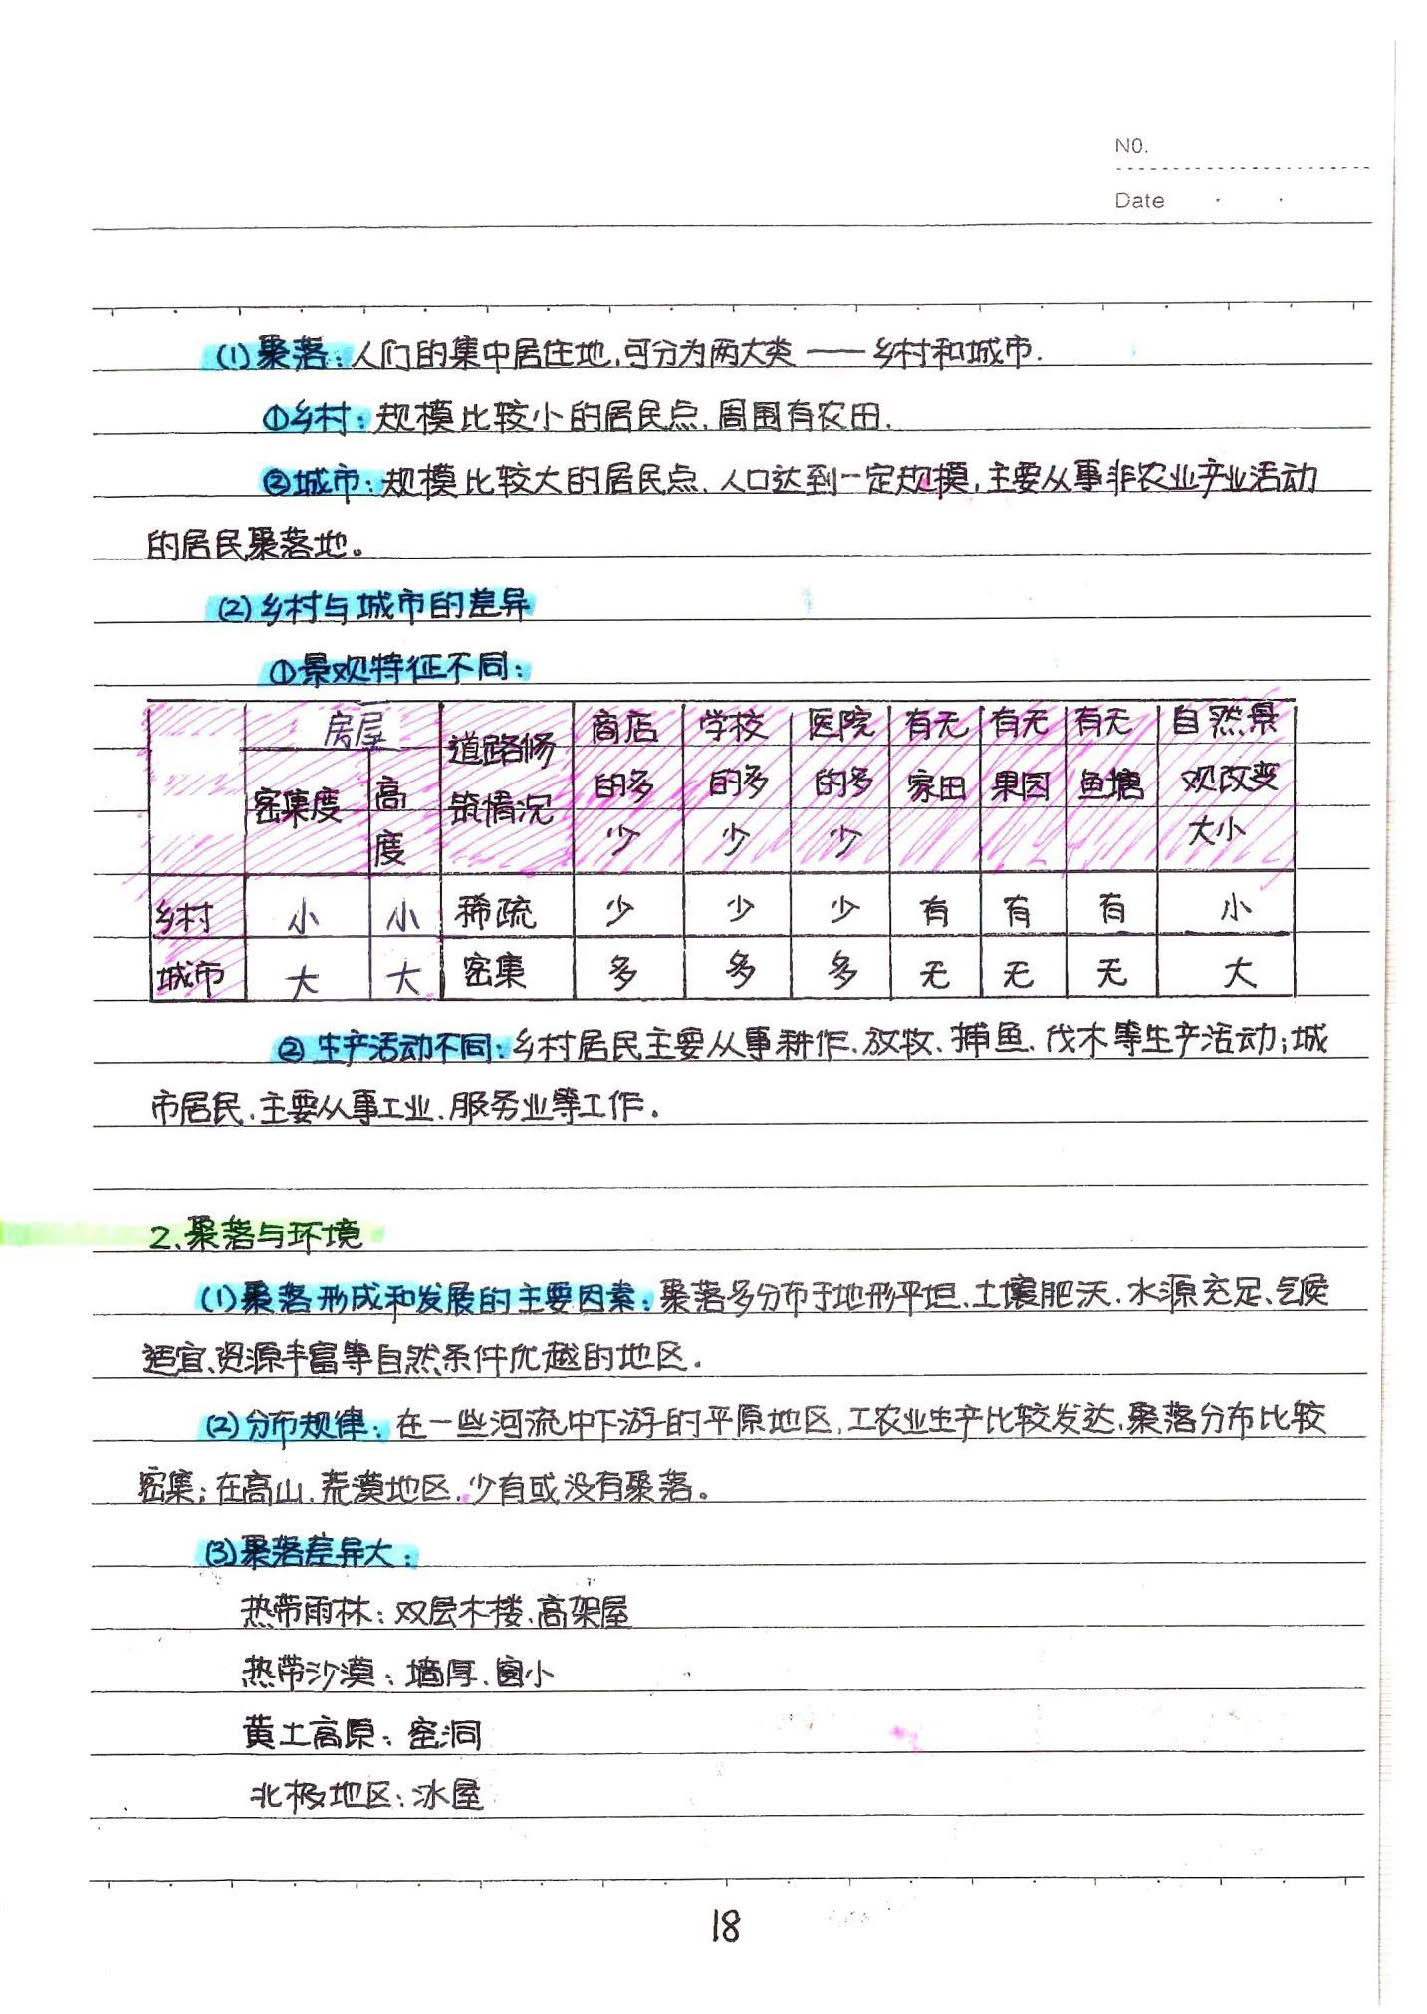 NO.
Date
(1)聚落:人们的集中居住地,可分为两大类——乡村和城市.
①乡村:规模比较小的居民点.周围有农田.
②城市:规模比较大的居民点、人口达到一定规模,主要从事非农业产业活动
的居民聚落地。
(2)乡村与城市的差异
①景观特征不同:
房屋 道路修 商店 学校 医院 有无 有无 有无 自然景
密集度 高 筑情况 的多 的多 的多 家田 果园 鱼塘 观改变
度 少 少 少 大小
乡村 小 小 稀疏 少 少 少 有 有 有 小
城市 大 大 密集 多 多 多 无 无 无 大
②生产活动不同:乡村居民主要从事耕作、放牧、捕鱼、伐木等生产活动;城
市居民、主要从事工业、服务业等工作.
2、聚落与环境
(1)聚落形成和发展的主要因素:聚落多分布于地形平坦、土壤肥沃、水源充足、气候
适宜、资源丰富等自然条件优越的地区.
(2)分布规律:在一些河流中下游的平原地区,工农业生产比较发达,聚落分布比较
密集;在高山、荒漠地区,少有或没有聚落。
(3)聚落差异大:
热带雨林:双层木楼、高架屋
热带沙漠:墙厚、窗小
黄土高原:窑洞
北极地区:冰屋
18